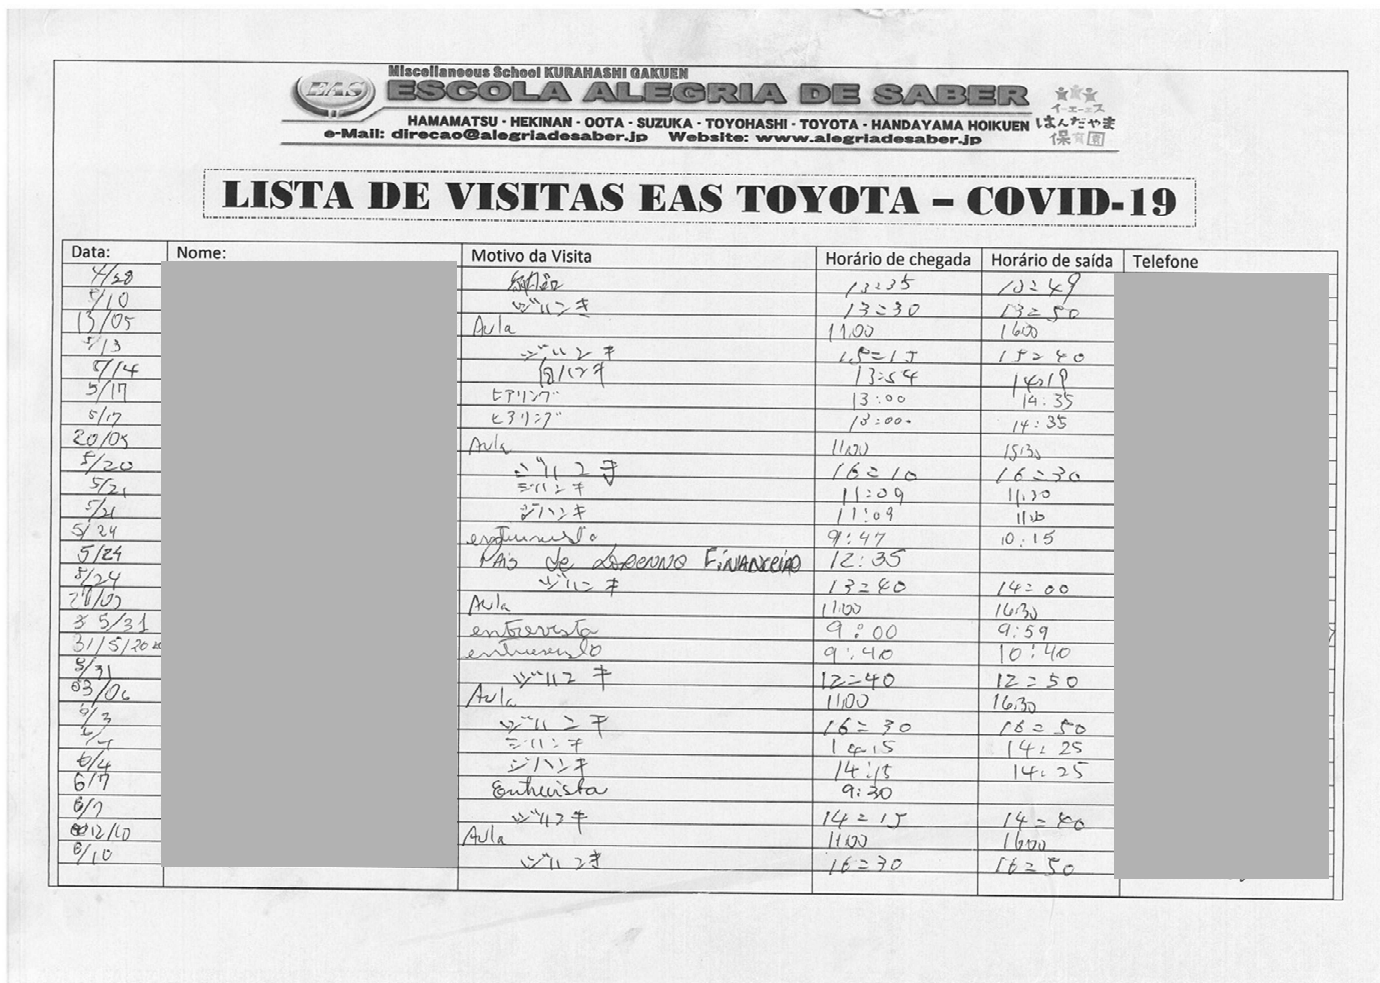 Miscellaneous School KURAHASHI GAKUEN
EAS ESCOLA ALEGRIA DE SABER
HAMAMATSU - HEKINAN - OOTA - SUZUKA - TOYOHASHI - TOYOTA - HANDAYAMA HOIKUEN
e-Mail: direcao@alegriadesaber.jp Website: www.alegriadesaber.jp
イーエーエス
はんだやま
保育園
LISTA DE VISITAS EAS TOYOTA – COVID-19
Data: Nome: Motivo da Visita Horário de chegada Horário de saída Telefone
4/28 13:35 13:49
5/10 ジハンキ 13:30 13:50
13/05 Aula 11:00 16:00
5/13 ジハンキ 15:15 15:40
5/14 自ハンキ 13:54 14:19
5/17 ヒアリング 13:00 14:35
5/17 ヒアリング 13:00 14:35
20/05 Aula 11:00 15:30
5/20 ジハンキ 16:10 16:30
5/21 ジハンキ 11:09 11:20
5/21 ジハンキ 11:09
5/24 9:47 10:15
5/24 PAIS de FINANCEIRO 12:35
5/24 ジハンキ 13:40 14:00
Aula 11:00 16:30
5/31 entrevista 9:00 9:59
31/5/20 entrevista 9:40 10:40
5/31 ジハンキ 12:40 12:50
03/06 Aula 11:00 16:30
6/3 ジハンキ 16:30 16:50
ジハンキ 14:15 14:25
6/4 ジハンキ 14:15 14:25
6/7 Entrevista 9:30
6/7 ジハンキ 14:15 14:40
Aula 11:00 16:00
6/10 ジハンキ 16:30 16:50